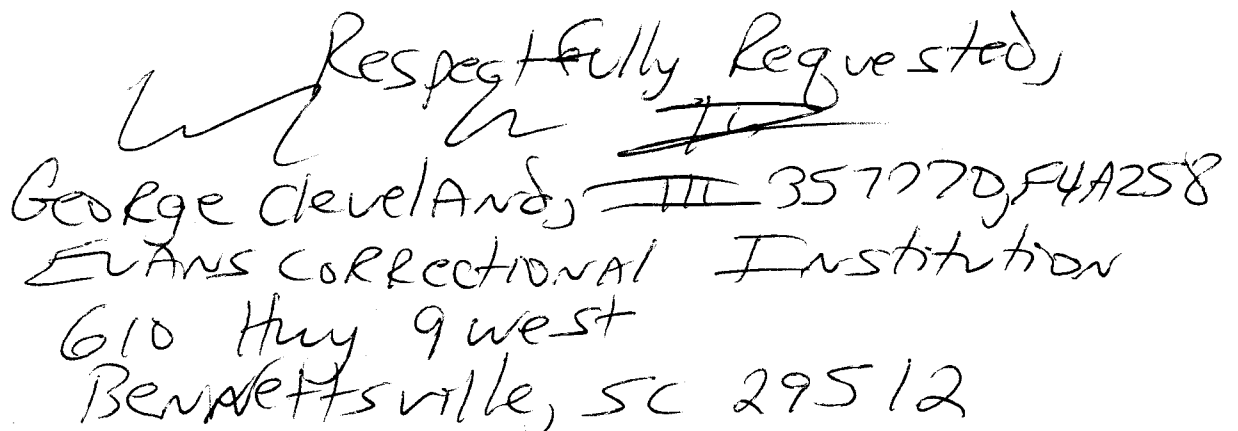 Respectfully Requested,
III
George Cleveland, III 357770, F4A258
Evans Correctional Institution
610 Hwy 9 west
Bennettsville, SC 29512